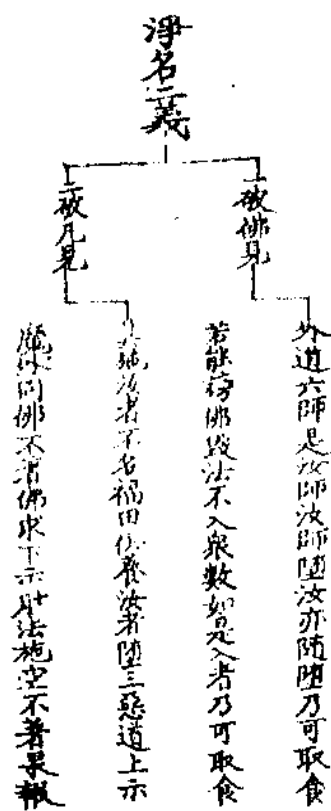 淨名二義
一破佛見
外道六師是汝師汝師墮汝亦隨墮乃可取食
若能謗佛毀法不入衆數如是入者乃可取食
二破凡見
其施汝者不名福田供養汝者墮三惡道上示
魔外同佛不著佛求下示財法施空不著果報